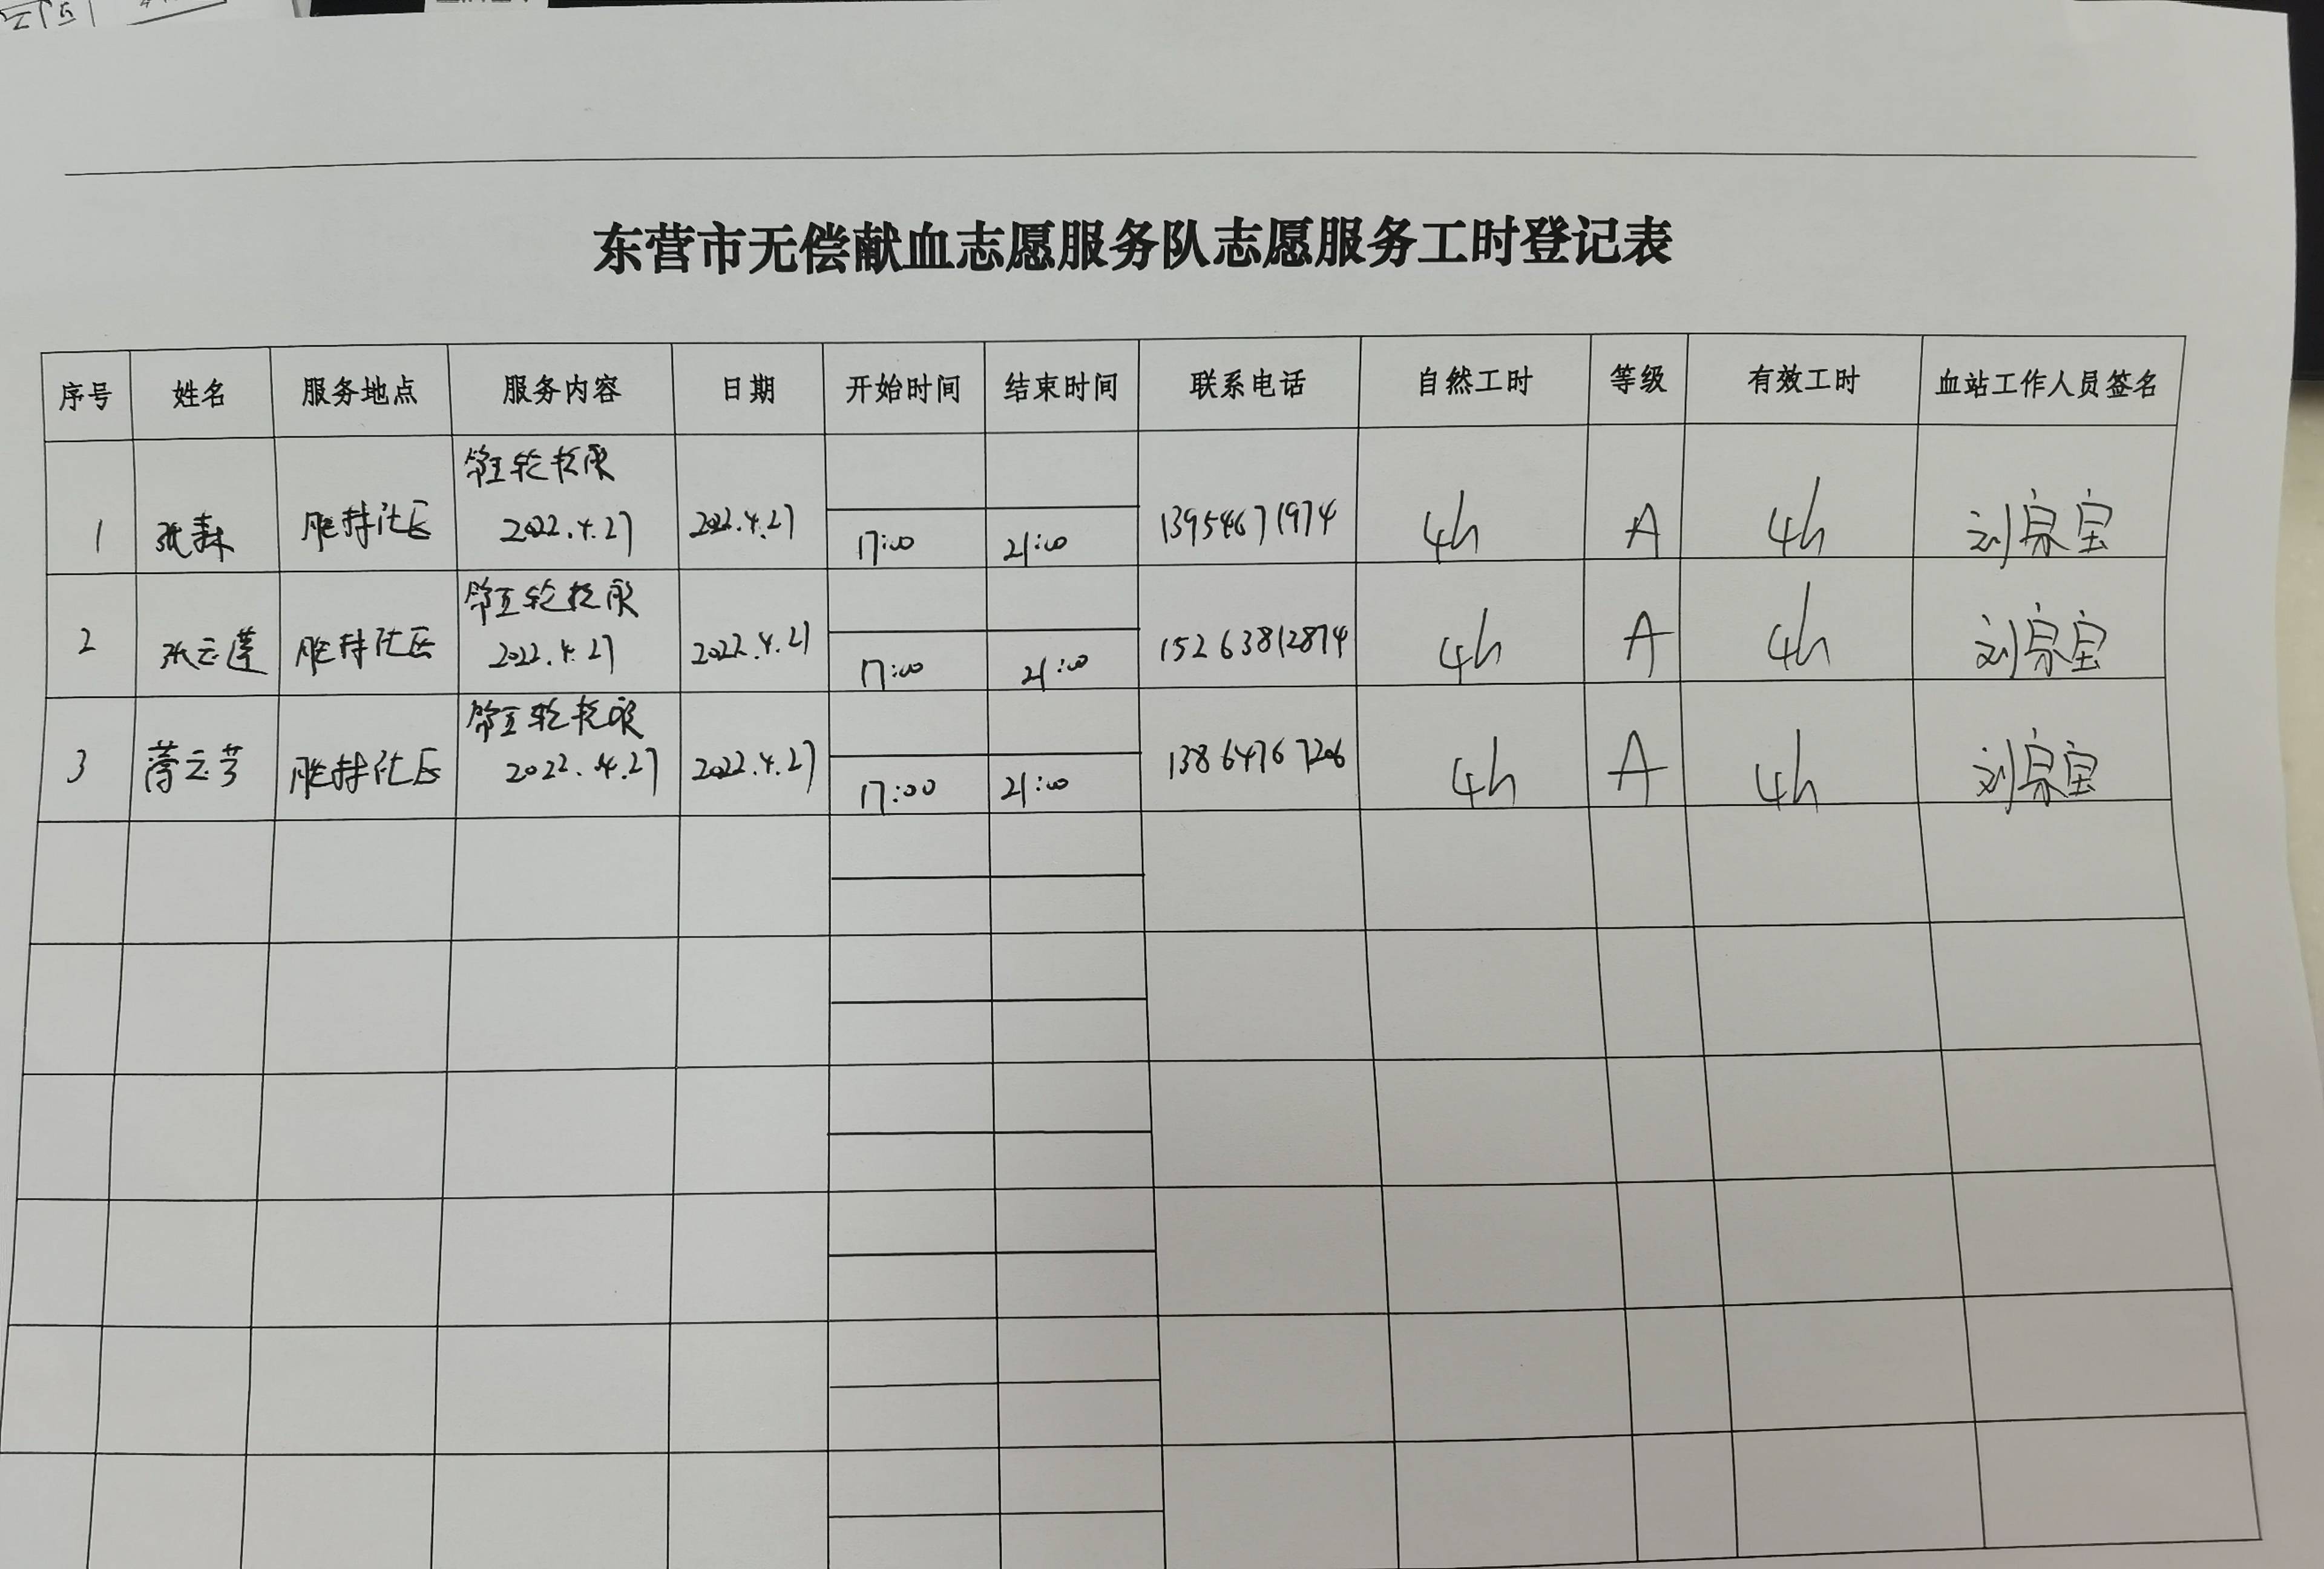 东营市无偿献血志愿服务队志愿服务工时登记表
序号 姓名 服务地点 服务内容 日期 开始时间 结束时间 联系电话 自然工时 等级 有效工时 血站工作人员签名
第五轮核酸
1 张 胜持社区 2022.4.27 2022.4.27 17:00 21:00 13954671974 4h A 4h 刘宗宝
第五轮核酸
2 张云莲 胜持社区 2022.4.27 2022.4.27 17:00 21:00 15263812874 4h A 4h 刘宗宝
第五轮核酸
3 云芳 胜持社区 2022.4.27 2022.4.27 17:00 21:00 13864767206 4h A 4h 刘宗宝